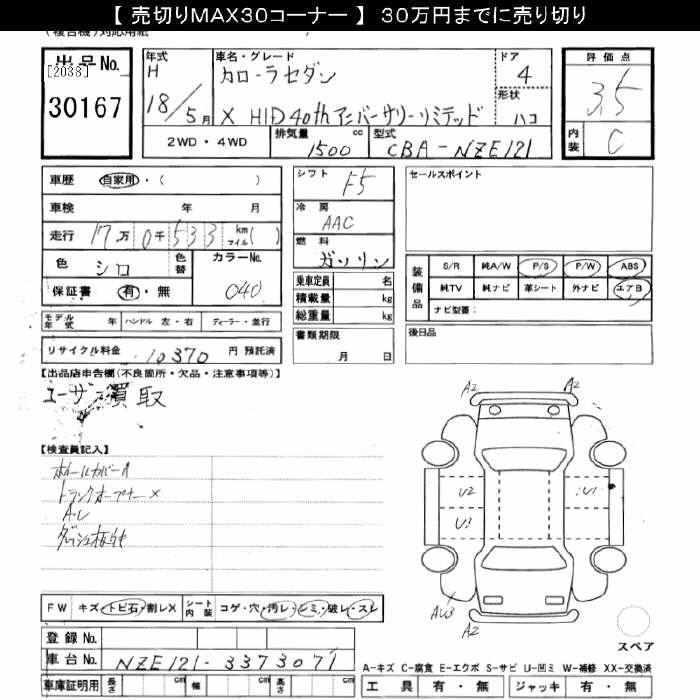 【 売切りMAX30コーナー 】 30万円までに売り切り
(複合機)対応用紙
出品No.
[2038]
30167
年式
H
18/5月
車名・グレード
カローラセダン
X HID40thアニバーサリーリミテッド
ドア
4
形状
ハコ
評価点
3.5
内装
C
2WD・4WD
排気量
1500
cc
型式
CBA-NZE121
車歴
自家用・( )
車検 年 月
走行 17万0千533 km マイル( )
色
シロ
色替
カラーNo.
040
保証書 有・無
モデル年式 年
ハンドル 左・右
ディーラー・並行
リサイクル料金 10370 円 預託済
シフト
F5
冷房
AAC
燃料
ガソリン
乗車定員 名
積載量 kg
総重量 kg
書類期限
月 日
セールスポイント
装備品
S/R 純A/W P/S P/W ABS
純TV 純ナビ 革シート 外ナビ エアB
ナビ型番:
後日品
【出品店申告欄(不良箇所・欠品・注意事項等)】
ユーザー買取
【検査員記入】
ホイールカバーA
トランクオープナー×
A・U
A2
A2
U2
U1
U3
AU3
A2
スペア
FW キズ・トビ石・割レX
シート内装 コゲ・穴・汚レ・シミ・破レ・スレ
登録No.
車台No. NZE121-3373071
車庫証明用 長さ cm 幅 cm 高さ cm
A-キズ C-腐食 E-エクボ S-サビ U-凹ミ W-補修 XX-交換済
工具 有・無 ジャッキ 有・無